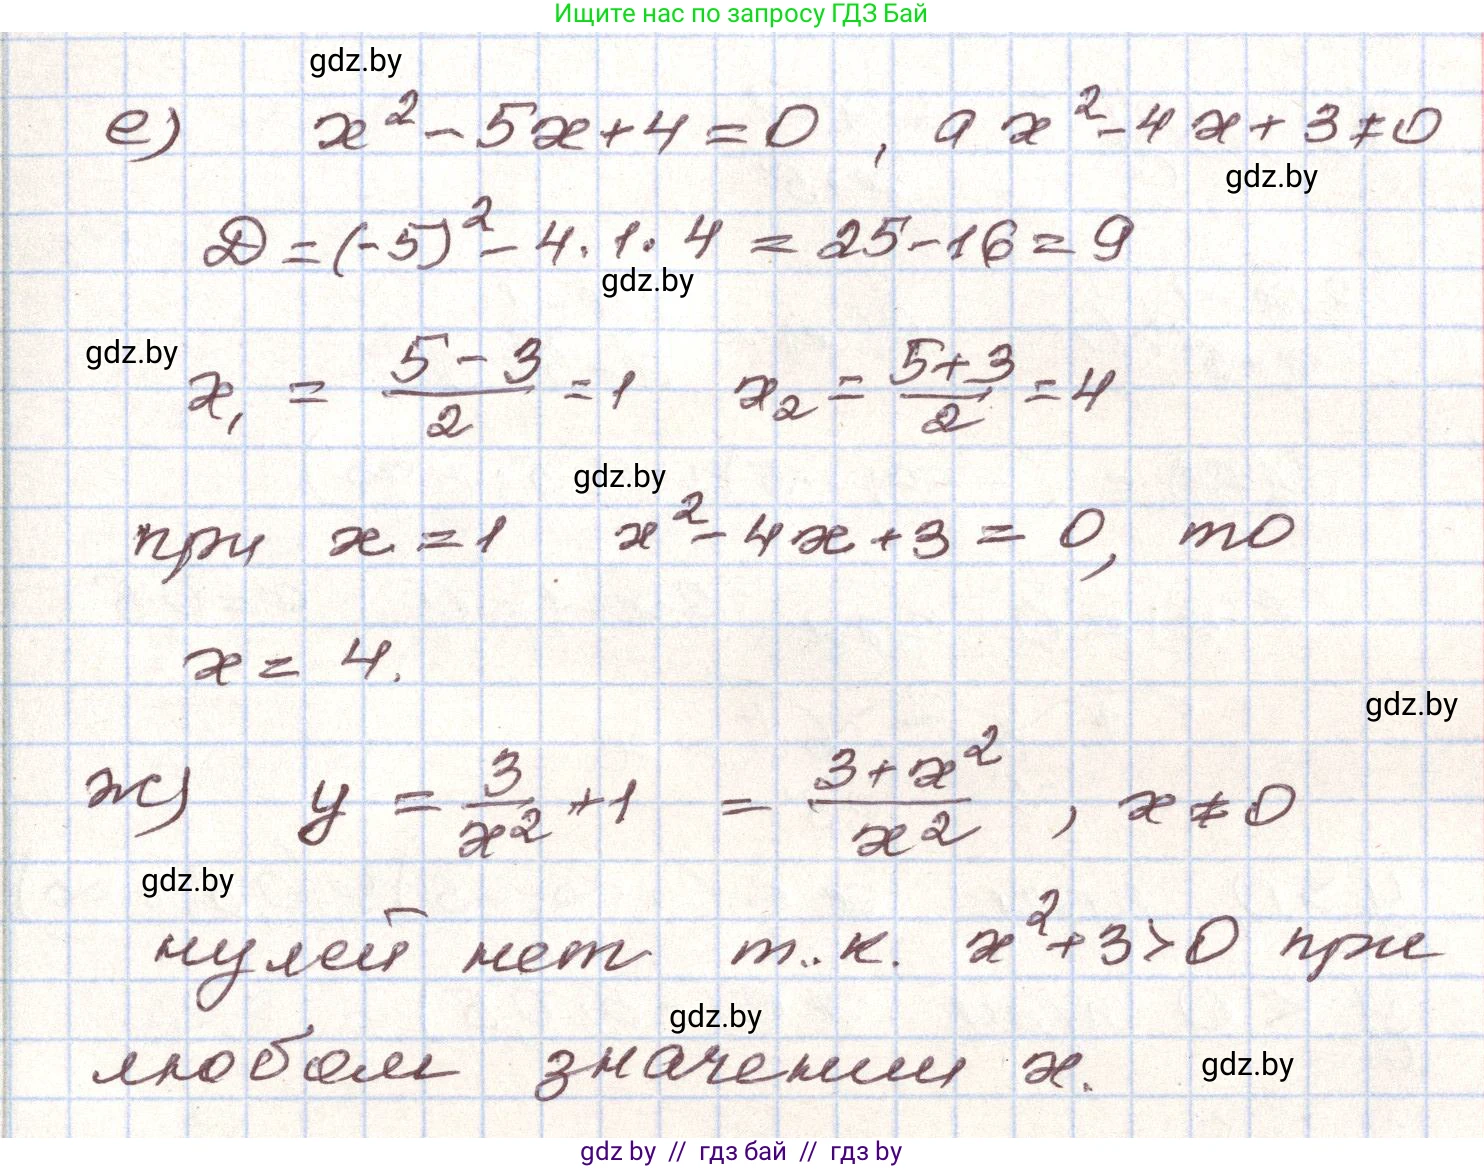 Ищите нас по запросу ГДЗ Бай
gdz.by
е) x² - 5x + 4 = 0 , а x² - 4x + 3 ≠ 0
gdz.by
D = (-5)² - 4 · 1 · 4 = 25 - 16 = 9
gdz.by
gdz.by
x₁ = (5 - 3)/2 = 1 x₂ = (5 + 3)/2 = 4
gdz.by
при x = 1 x² - 4x + 3 = 0, то
x = 4.
gdz.by
ж) y = 3/x² + 1 = (3 + x²)/x² , x ≠ 0
gdz.by
нулей нет т.к. x² + 3 > 0 при
gdz.by
любом значении x.
gdz.by
gdz.by // гдз бай // гдз.by